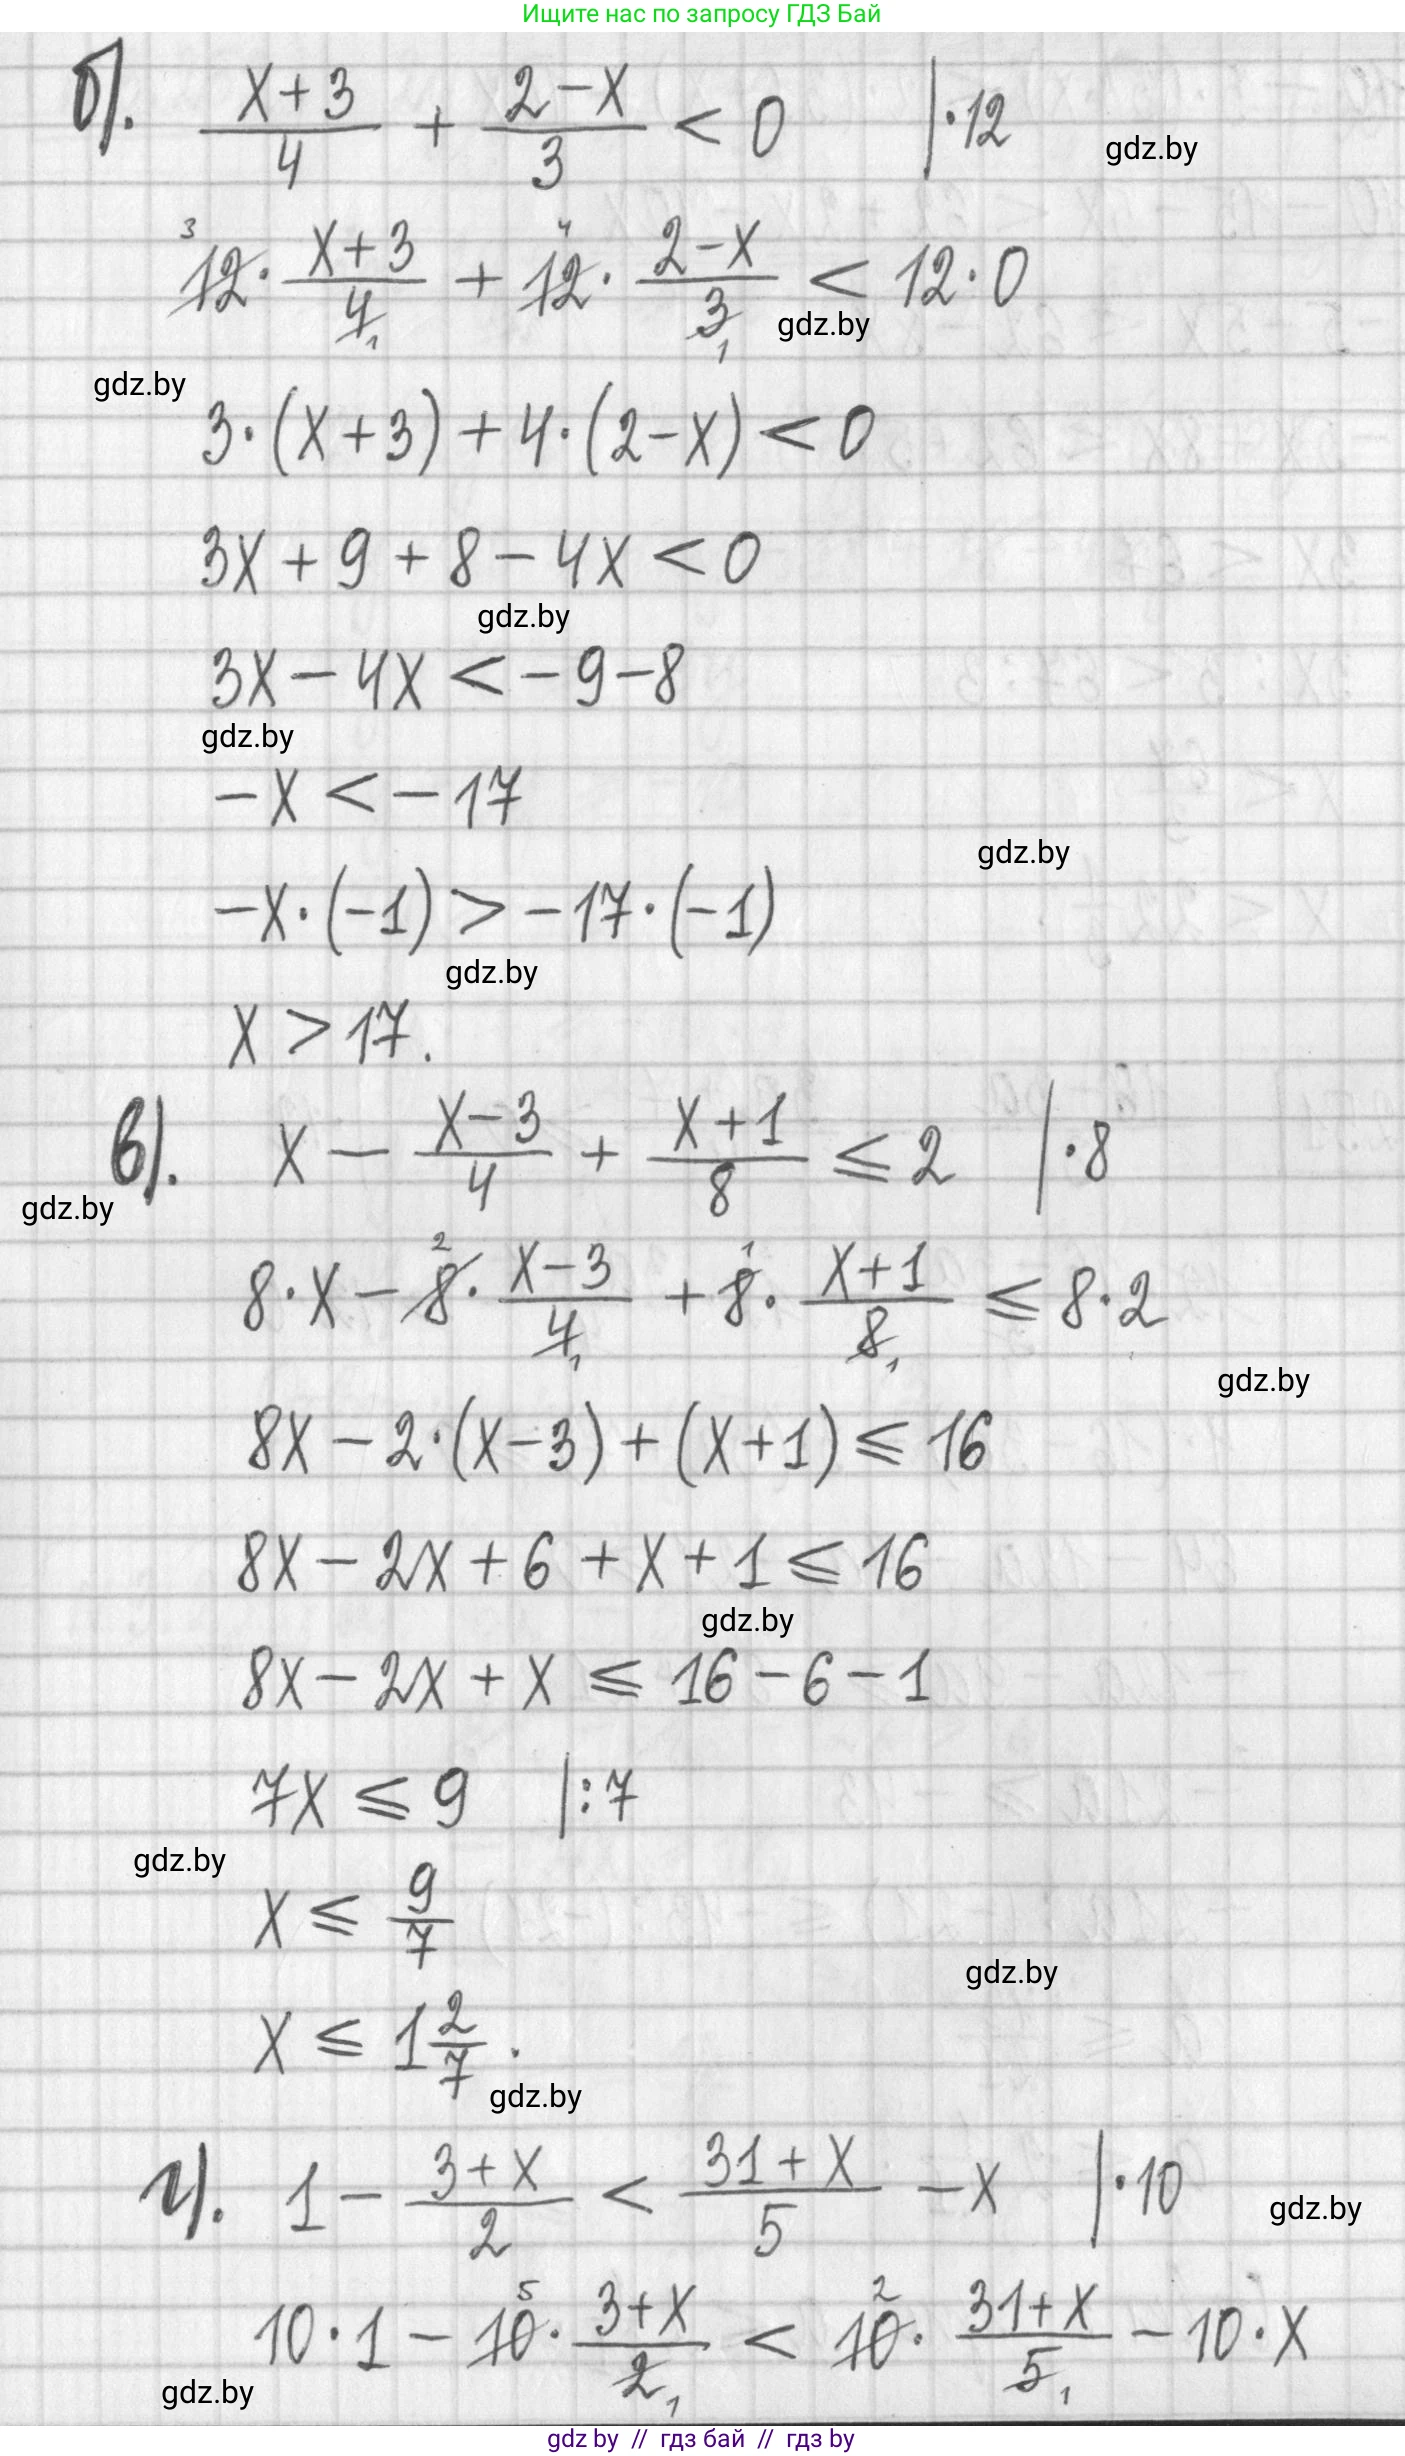 Ищите нас по запросу ГДЗ Бай
б). (x+3)/4 + (2-x)/3 < 0 | ·12
gdz.by
³12 · (x+3)/4₁ + ⁴12 · (2-x)/3₁ < 12·0
gdz.by
gdz.by
3·(x+3)+4·(2-x)<0
3x+9+8-4x<0
gdz.by
3x-4x<-9-8
gdz.by
-x<-17
gdz.by
-x·(-1)>-17·(-1)
gdz.by
x>17.
в). x - (x-3)/4 + (x+1)/8 ⩽ 2 | ·8
gdz.by
8·x - ²8 · (x-3)/4₁ + ¹8 · (x+1)/8₁ ⩽ 8·2
gdz.by
8x-2·(x-3)+(x+1)⩽16
8x-2x+6+x+1⩽16
gdz.by
8x-2x+x⩽16-6-1
7x⩽9 |:7
gdz.by
x⩽9/7
gdz.by
x⩽1 2/7.
gdz.by
г). 1 - (3+x)/2 < (31+x)/5 - x | ·10
gdz.by
10·1 - ⁵10 · (3+x)/2₁ < ²10 · (31+x)/5₁ - 10·x
gdz.by
gdz by // гдз бай // гдз by